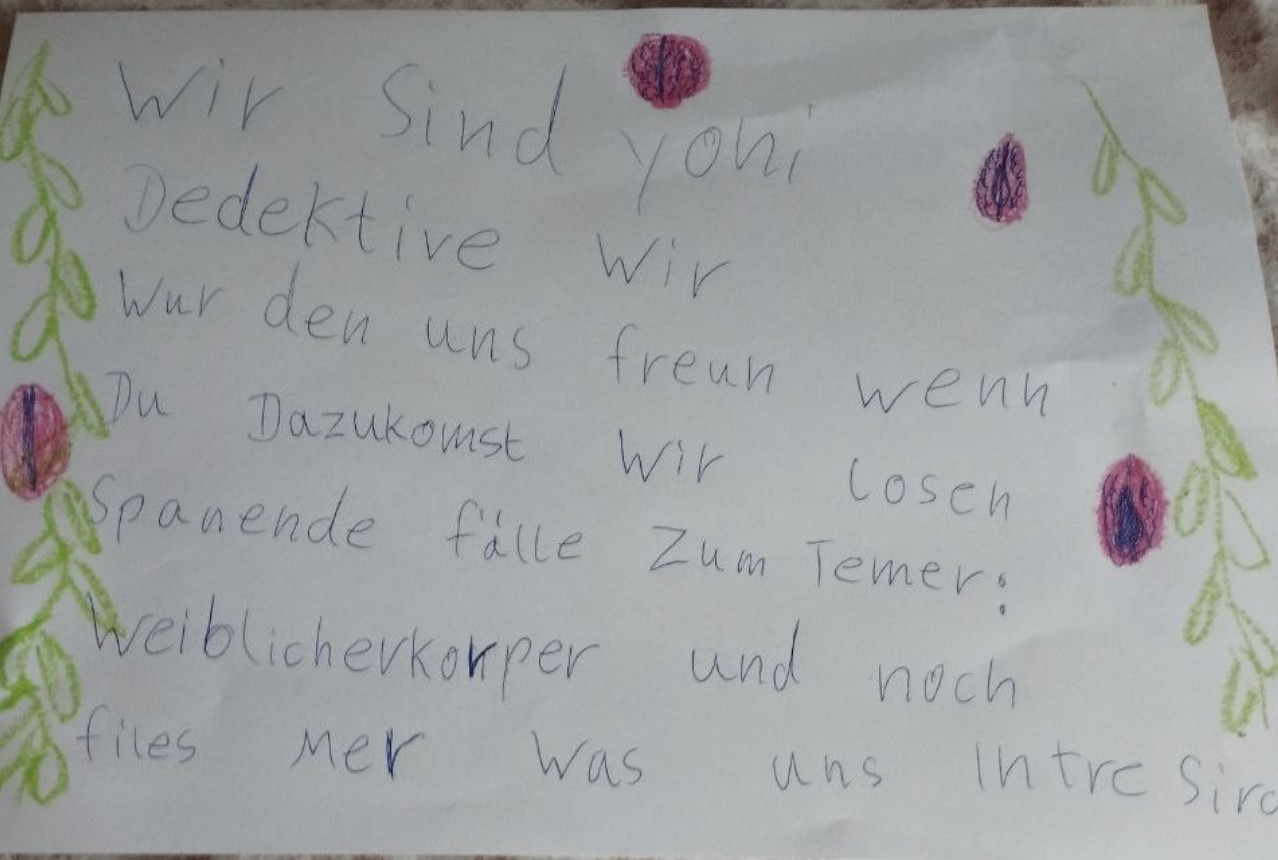 Wir Sind yoni
Dedektive Wir
Wur den uns freun wenn
Du Dazukomst Wir losen
Spanende fälle Zum Temer:
Weiblicherkorper und noch
files mer was uns Intre Sire